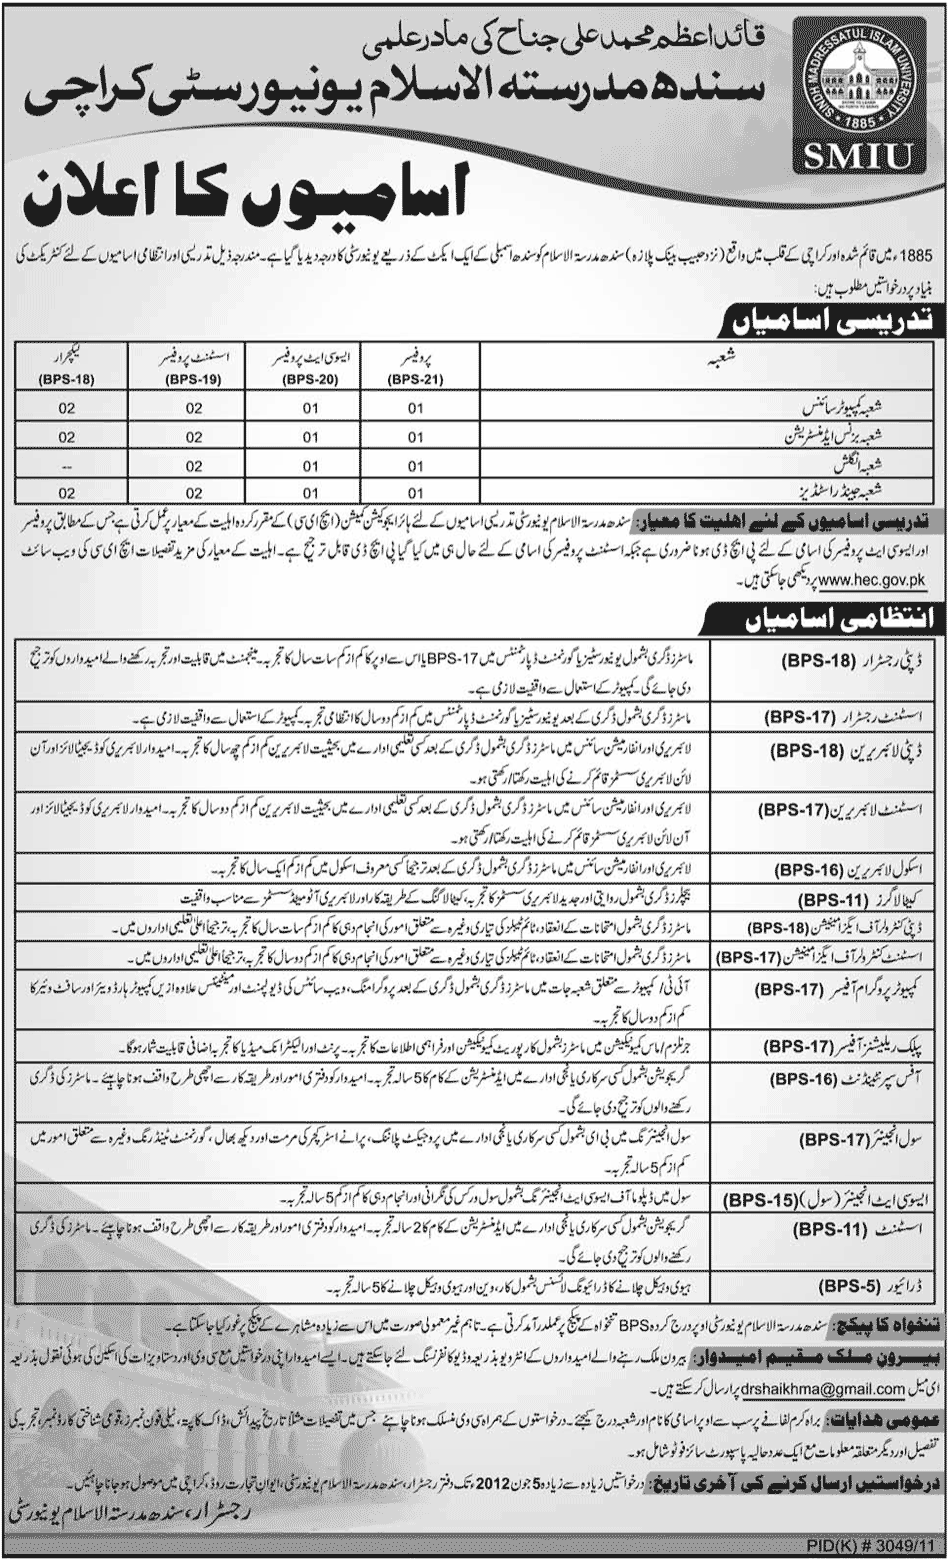 قائداعظم محمد علی جناح کی مادر علمی
سندھ مدرستہ الاسلام یونیورسٹی کراچی
SINDH MADRESSATUL ISLAM UNIVERSITY
1885
SMIU
اسامیوں کا اعلان
1885ء میں قائم شدہ اور کراچی کے قلب میں واقع (نزد حبیب بینک پلازہ) سندھ مدرسۃ الاسلام کو سندھ اسمبلی کے ایک ایکٹ کے ذریعے یونیورسٹی کا درجہ دیدیا گیا ہے۔ مندرجہ ذیل تدریسی اور انتظامی اسامیوں کے لئے کنٹریکٹ کی
بنیاد پر درخواستیں مطلوب ہیں:
تدریسی اسامیاں
شعبہ پروفیسر (BPS-21) ایسوسی ایٹ پروفیسر (BPS-20) اسسٹنٹ پروفیسر (BPS-19) لیکچرار (BPS-18)
شعبہ کمپیوٹر سائنس 01 01 02 02
شعبہ بزنس ایڈمنسٹریشن 01 01 02 02
شعبہ انگلش 01 01 02 --
شعبہ جینڈر اسٹڈیز 01 01 02 02
تدریسی اسامیوں کے لئے اہلیت کا معیار: سندھ مدرسۃ الاسلام یونیورسٹی تدریسی اسامیوں کے لئے ہائر ایجوکیشن کمیشن (ایچ ای سی) کے مقرر کردہ اہلیت کے معیار پر عمل کرتی ہے جس کے مطابق پروفیسر
اور ایسوسی ایٹ پروفیسر کی اسامی کے لئے پی ایچ ڈی ہونا ضروری ہے جبکہ اسسٹنٹ پروفیسر کی اسامی کے لئے حال ہی میں کیا گیا پی ایچ ڈی قابل ترجیح ہے۔ اہلیت کے معیار کی مزید تفصیلات ایچ ای سی کی ویب سائٹ
www.hec.gov.pk پر دیکھی جاسکتی ہیں۔
انتظامی اسامیاں
ڈپٹی رجسٹرار (BPS-18)
ماسٹرز ڈگری بشمول یونیورسٹیز یا گورنمنٹ ڈپارٹمنٹس میں BPS-17 یا اس سے اوپر کا کم از کم سات سال کا تجربہ۔ مینجمنٹ میں قابلیت اور تجربہ رکھنے والے امیدواروں کو ترجیح
دی جائے گی۔ کمپیوٹر کے استعمال سے واقفیت لازمی ہے۔
اسسٹنٹ رجسٹرار (BPS-17)
ماسٹرز ڈگری بشمول ڈگری کے بعد یونیورسٹیز یا گورنمنٹ ڈپارٹمنٹس میں کم از کم دو سال کا انتظامی تجربہ۔ کمپیوٹر کے استعمال سے واقفیت لازمی ہے۔
ڈپٹی لائبریرین (BPS-18)
لائبریری اور انفارمیشن سائنس میں ماسٹرز ڈگری بشمول ڈگری کے بعد کسی تعلیمی ادارے میں بحیثیت لائبریرین کم از کم چھ سال کا تجربہ۔ امیدوار لائبریری کو ڈیجیٹلائز اور آن
لائن لائبریری سسٹمز قائم کرنے کی اہلیت رکھتا/رکھتی ہو۔
اسسٹنٹ لائبریرین (BPS-17)
لائبریری اور انفارمیشن سائنس میں ماسٹرز ڈگری بشمول ڈگری کے بعد کسی تعلیمی ادارے میں بحیثیت لائبریرین کم از کم دو سال کا تجربہ۔ امیدوار لائبریری کو ڈیجیٹلائز اور
آن لائن لائبریری سسٹمز قائم کرنے کی اہلیت رکھتا/رکھتی ہو۔
اسکول لائبریرین (BPS-16)
لائبریری اور انفارمیشن سائنس میں ماسٹرز ڈگری بشمول ڈگری کے بعد ترجیحاً کسی معروف اسکول میں کم از کم ایک سال کا تجربہ۔
کیٹالاگرز (BPS-11)
بیچلرز ڈگری بشمول روایتی اور جدید لائبریری سسٹمز کا تجربہ، کیٹالاگنگ کے طریقہ کار اور لائبریری آٹومیٹڈ سسٹمز سے مناسب واقفیت
ڈپٹی کنٹرولر آف ایگزامینیشن (BPS-18)
ماسٹرز ڈگری بشمول امتحانات کے انعقاد، ٹائم ٹیبلز کی تیاری وغیرہ سے متعلق امور کی انجام دہی کا کم از کم سات سال کا تجربہ، ترجیحاً اعلیٰ تعلیمی اداروں میں۔
اسسٹنٹ کنٹرولر آف ایگزامینیشن (BPS-17)
ماسٹرز ڈگری بشمول امتحانات کے انعقاد، ٹائم ٹیبلز کی تیاری وغیرہ سے متعلق امور کی انجام دہی کا کم از کم دو سال کا تجربہ، ترجیحاً اعلیٰ تعلیمی اداروں میں۔
کمپیوٹر پروگرام آفیسر (BPS-17)
آئی ٹی/ کمپیوٹر سے متعلق شعبہ جات میں ماسٹرز ڈگری بشمول ڈگری کے بعد پروگرامنگ، ویب سائٹس کی ڈیولپمنٹ اور مینٹیننس علاوہ ازیں کمپیوٹر ہارڈویئر اور سافٹ ویئر کا
کم از کم دو سال کا تجربہ۔
پبلک ریلیشنز آفیسر (BPS-17)
جرنلزم/ ماس کمیونیکیشن میں ماسٹرز بشمول کارپوریٹ کمیونیکیشن اور فراہمی اطلاعات کا تجربہ۔ پرنٹ اور الیکٹرانک میڈیا کا تجربہ اضافی قابلیت شمار ہوگا۔
آفس سپرنٹنڈنٹ (BPS-16)
گریجویشن بشمول کسی سرکاری یا نجی ادارے میں ایڈمنسٹریشن کے کام کا 5 سالہ تجربہ۔ امیدوار کو دفتری امور اور طریقہ کار سے اچھی طرح واقف ہونا چاہیئے۔ ماسٹرز کی ڈگری
رکھنے والوں کو ترجیح دی جائے گی۔
سول انجینئر (BPS-17)
سول انجینئرنگ میں بی ای بشمول کسی سرکاری یا نجی ادارے میں پروجیکٹ پلاننگ، پرانے اسٹرکچر کی مرمت اور دیکھ بھال، گورنمنٹ ٹینڈرنگ وغیرہ سے متعلق امور میں
کم از کم 5 سالہ تجربہ۔
ایسوسی ایٹ انجینئر (سول) (BPS-15)
سول میں ڈپلوما آف ایسوسی ایٹ انجینئرنگ بشمول سول ورکس کی نگرانی اور انجام دہی کا کم از کم 5 سالہ تجربہ۔
اسسٹنٹ (BPS-11)
گریجویشن بشمول کسی سرکاری یا نجی ادارے میں ایڈمنسٹریشن کے کام کا 2 سالہ تجربہ۔ امیدوار کو دفتری امور اور طریقہ کار سے اچھی طرح واقف ہونا چاہیئے۔ ماسٹرز کی ڈگری
رکھنے والوں کو ترجیح دی جائے گی۔
ڈرائیور (BPS-5)
ہیوی وہیکل چلانے کا ڈرائیونگ لائسنس بشمول کار، وین اور ہیوی وہیکل چلانے کا 5 سالہ تجربہ۔
تنخواہ کا پیکج: سندھ مدرسۃ الاسلام یونیورسٹی اوپر درج کردہ BPS تنخواہ کے پیکج پر عملدرآمد کرتی ہے۔ تاہم غیر معمولی صورت میں اس سے زیادہ مشاہرے کے پیکج پر غور کیا جاسکتا ہے۔
بیرون ملک مقیم امیدوار: بیرون ملک رہنے والے امیدواروں کے انٹرویو بذریعہ وڈیو کانفرنسنگ لئے جاسکتے ہیں۔ ایسے امیدوار اپنی درخواستیں مع سی وی اور دستاویزات کی اسکین کی ہوئی نقول بذریعہ
ای میل drshaikhma@gmail.com پر ارسال کرسکتے ہیں۔
عمومی ہدایات: براہ کرم لفافے پر سب سے اوپر اسامی کا نام اور شعبہ درج کیجئے۔ درخواستوں کے ہمراہ سی وی منسلک ہونا چاہئے جس میں تفصیلات مثلاً تاریخ پیدائش، ڈاک کا پتہ، ٹیلی فون نمبرز، قومی شناختی کارڈ نمبر، تجربہ کی
تفصیل اور دیگر متعلقہ معلومات مع ایک عدد حالیہ پاسپورٹ سائز فوٹو شامل ہو۔
درخواستیں ارسال کرنے کی آخری تاریخ: درخواستیں زیادہ سے زیادہ 5 جون 2012ء تک دفتر رجسٹرار، سندھ مدرسۃ الاسلام یونیورسٹی، ایوان تجارت روڈ، کراچی میں موصول ہوجانا چاہئیں۔
رجسٹرار، سندھ مدرستہ الاسلام یونیورسٹی
PID(K) # 3049/11